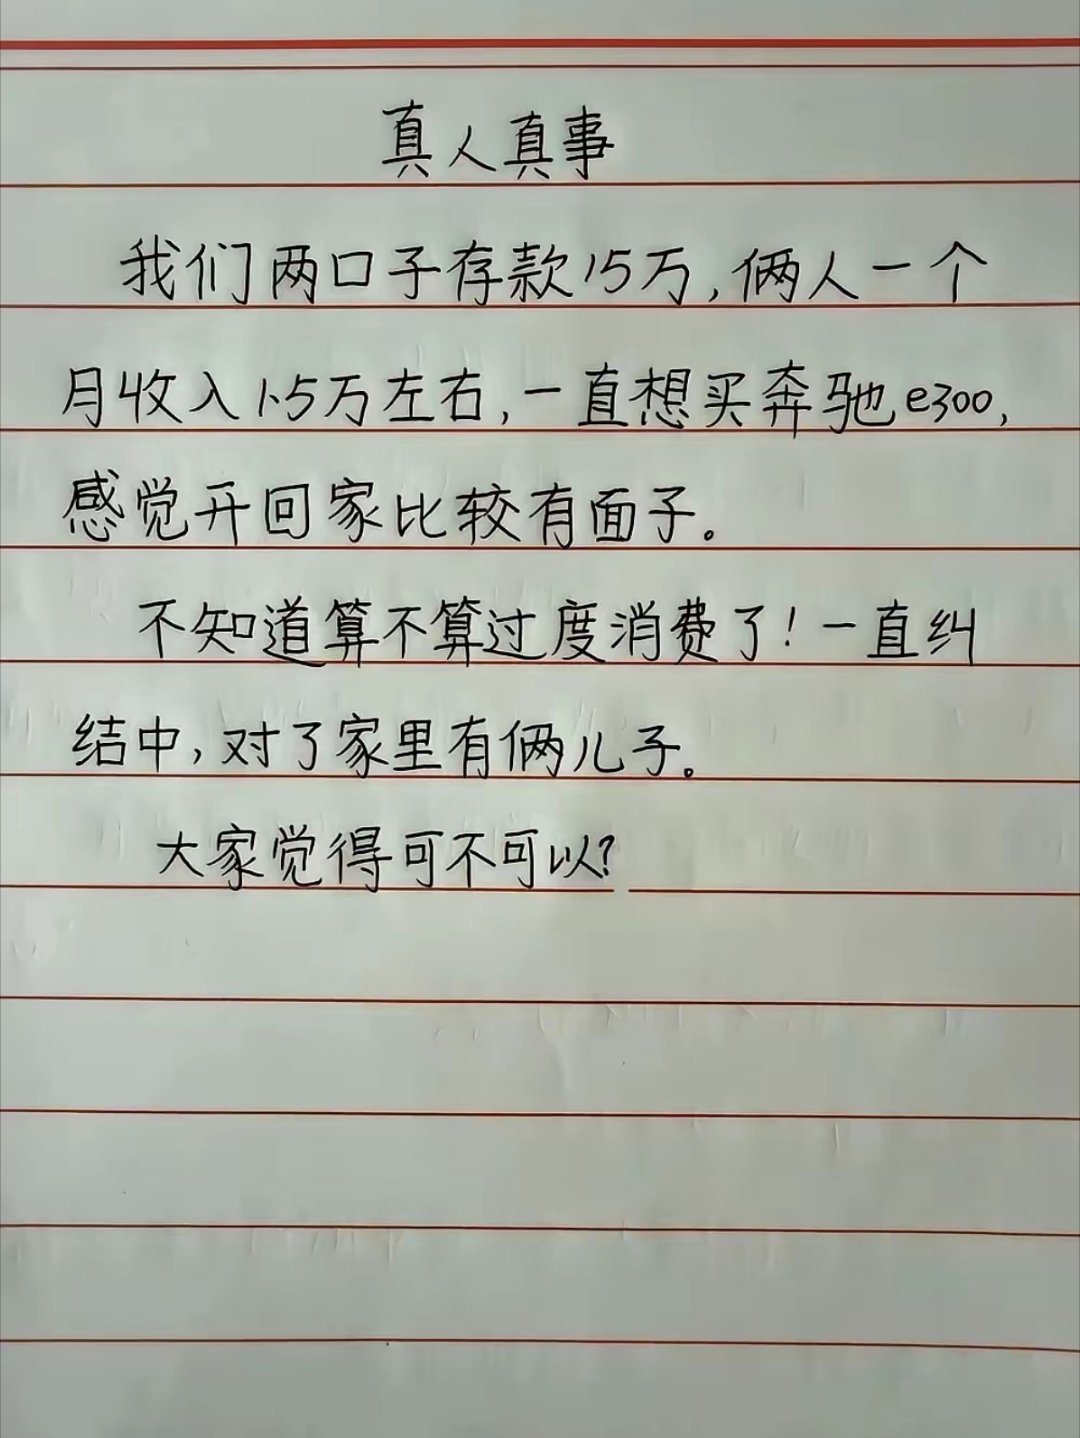 真人真事
我们两口子存款15万,俩人一个
月收入1.5万左右,一直想买奔驰e300,
感觉开回家比较有面子。
不知道算不算过度消费了!一直纠
结中,对了家里有俩儿子。
大家觉得可不可以?